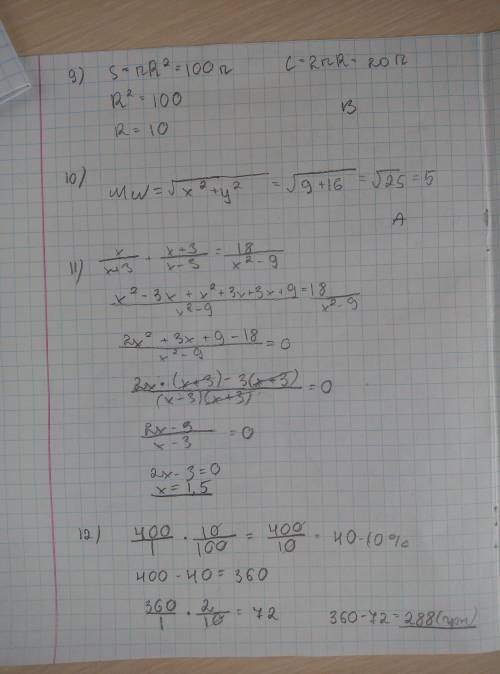 9) S = πR² = 100π C = 2πR = 20π
R² = 100
R = 10 B
10) MN = √x² + y² = √9 + 16 = √25 = 5
A
11) x/x+3 + x+3/x-3 = 18/x² - 9
x² - 3x + x² + 3x + 3x + 9/x² - 9 = 18/x² - 9
2x² + 3x + 9 - 18/x² - 9 = 0
2x · (x+3) - 3(x+3)/(x-3)(x+3) = 0
2x - 3/x - 3 = 0
2x - 3 = 0
x = 1,5
12) 400/1 · 10/100 = 400/10 = 40 - 10%
400 - 40 = 360
360/1 · 2/10 = 72 360 - 72 = 288 (грн)